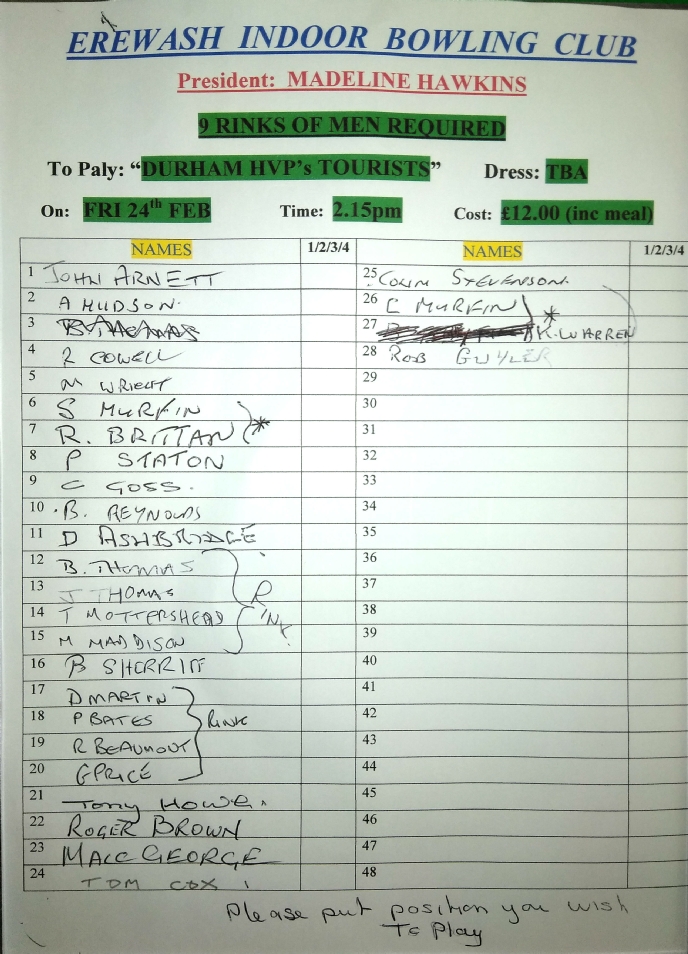 EREWASH INDOOR BOWLING CLUB
President: MADELINE HAWKINS
9 RINKS OF MEN REQUIRED
To Paly: “DURHAM HVP's TOURISTS” Dress: TBA
On: FRI 24th FEB Time: 2.15pm Cost: £12.00 (inc meal)
NAMES 1/2/3/4 NAMES 1/2/3/4
1 JOHN ARNETT 25 COLIN STEVENSON.
2 A HUDSON. 26 C MURFIN *
3 27 K.WARREN
4 R COWELL 28 ROB GUYLER
5 M WRIGHT 29
6 S MURFIN 30
7 R. BRITTAN * 31
8 P STATON 32
9 C GOSS. 33
10 B. REYNOLDS 34
11 D ASHBRIDGE 35
12 B. THOMAS 36
13 J THOMAS 37
14 T MOTTERSHEAD RINK 38
15 M MADDISON 39
16 B SHERRIFF 40
17 D MARTIN 41
18 P BATES RINK 42
19 R BEAUMONT 43
20 G PRICE 44
21 Tony Howe. 45
22 ROGER BROWN 46
23 MALC GEORGE 47
24 TOM COX 48
Please put position you wish
To Play